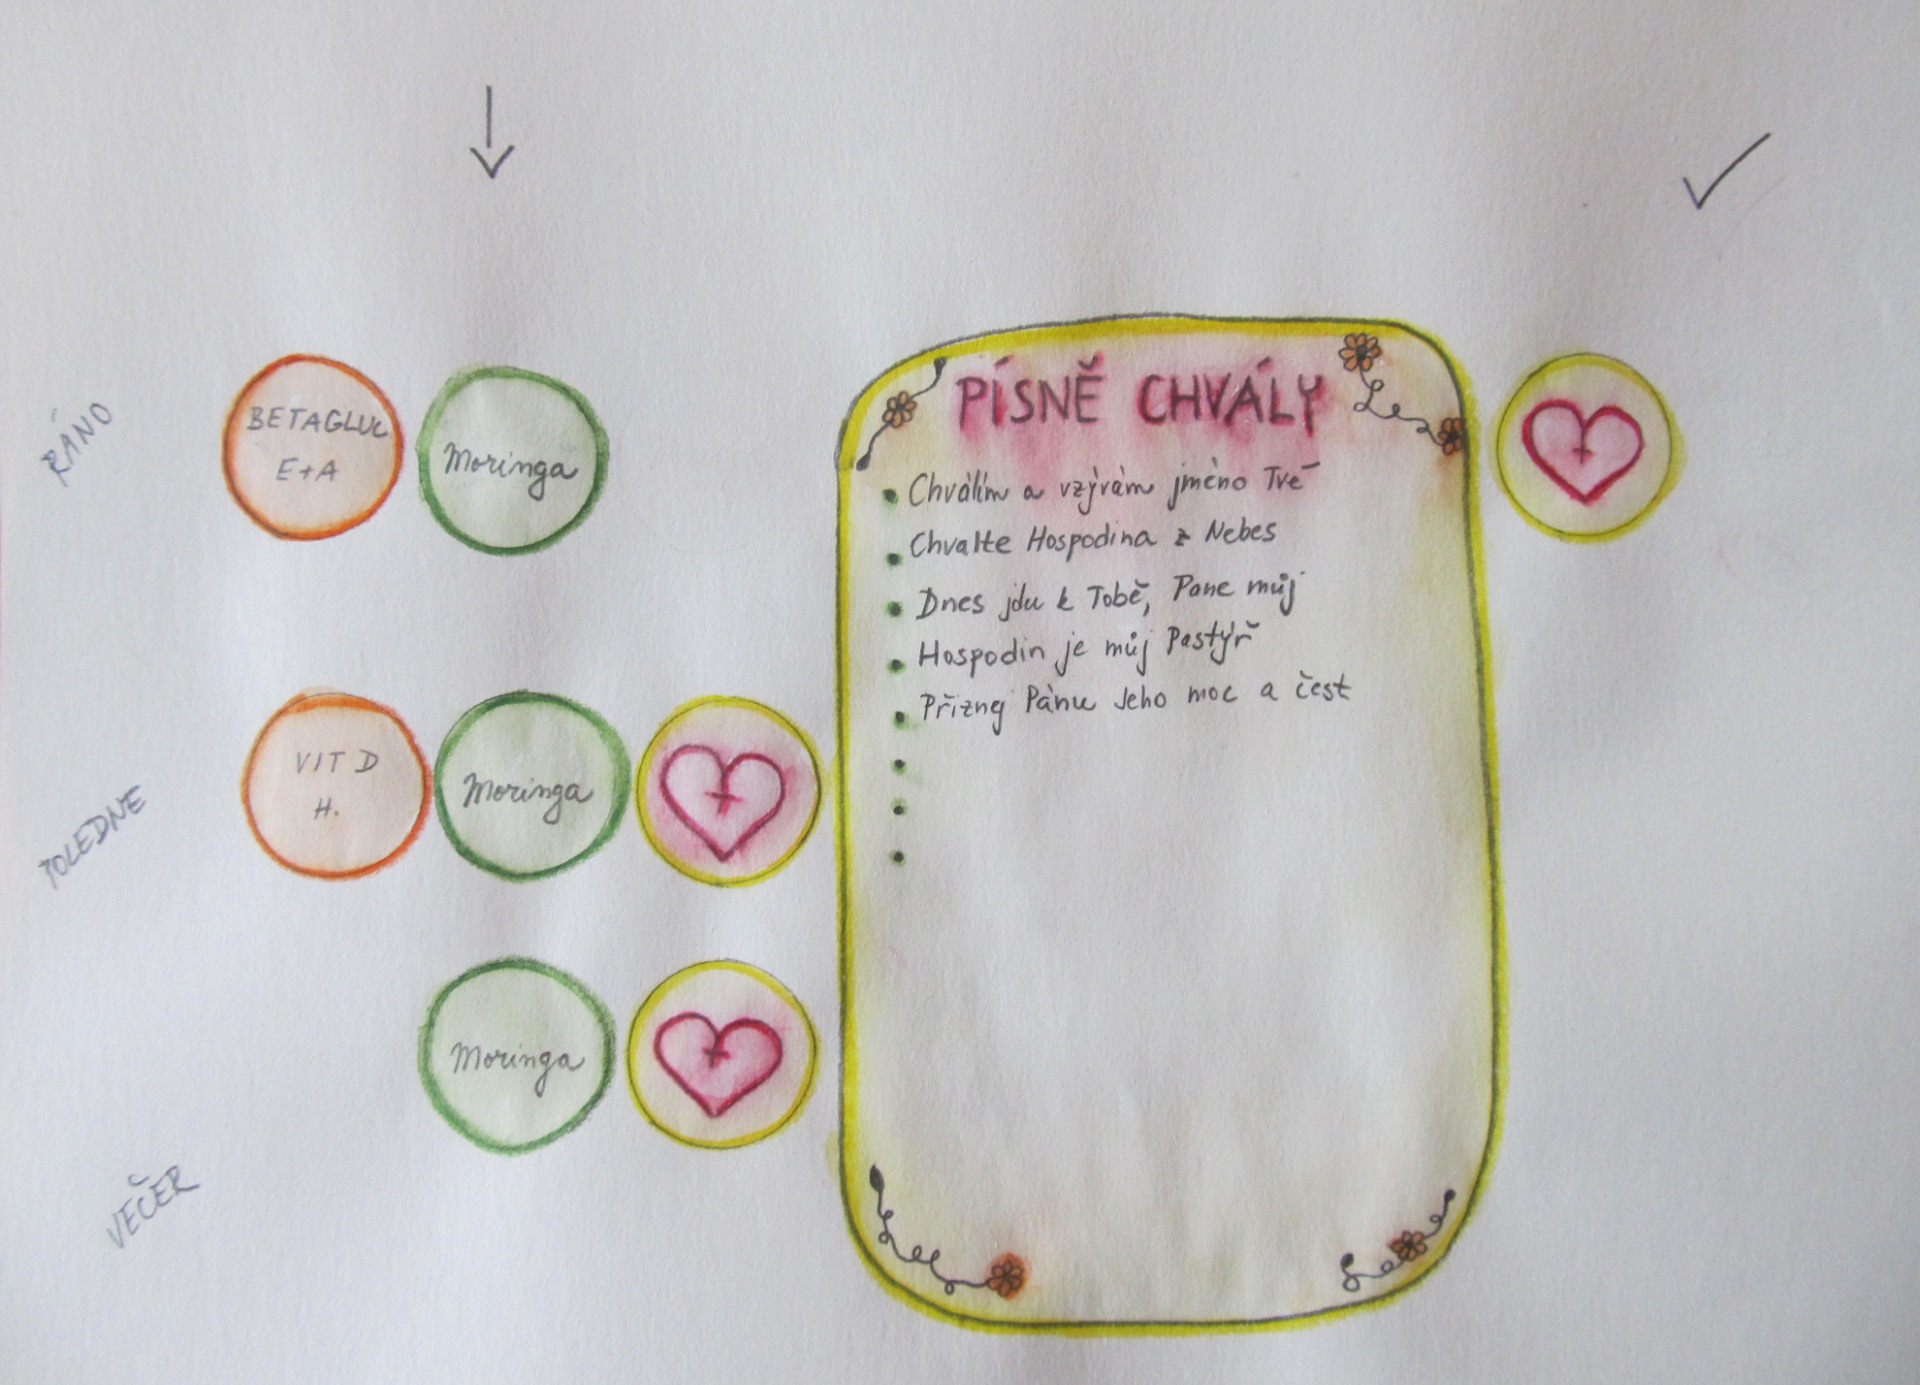 RÁNO
BETAGLUC
E+A
Moringa
POLEDNE
VIT D
H.
Moringa
Moringa
VEČER
PÍSNĚ CHVÁLY
Chválím a vzývám jméno Tvé
Chvalte Hospodina z Nebes
Dnes jdu k Tobě, Pane můj
Hospodin je můj Pastýř
Přizng Pánu Jeho moc a čest